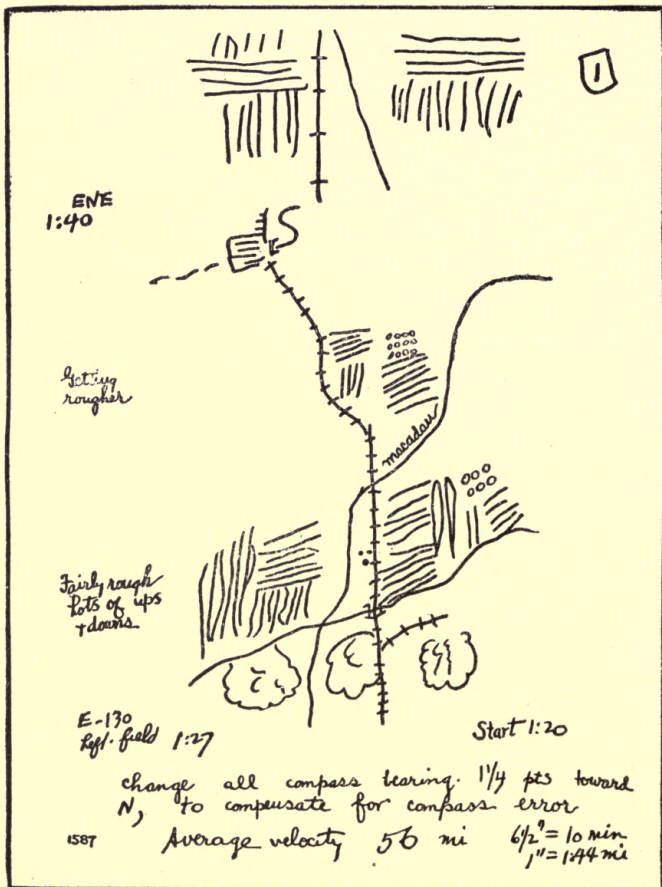 1
ENE
1:40
Getting
rougher
macadam
Fairly rough
Lots of ups
+ downs
E-130
Left field 1:27
Start 1:20
change all compass bearing. 1 1/4 pts toward
N, to compensate for compass error
1587
Average velocity 56 mi
6 1/2" = 10 min
1" = 1:44 mi